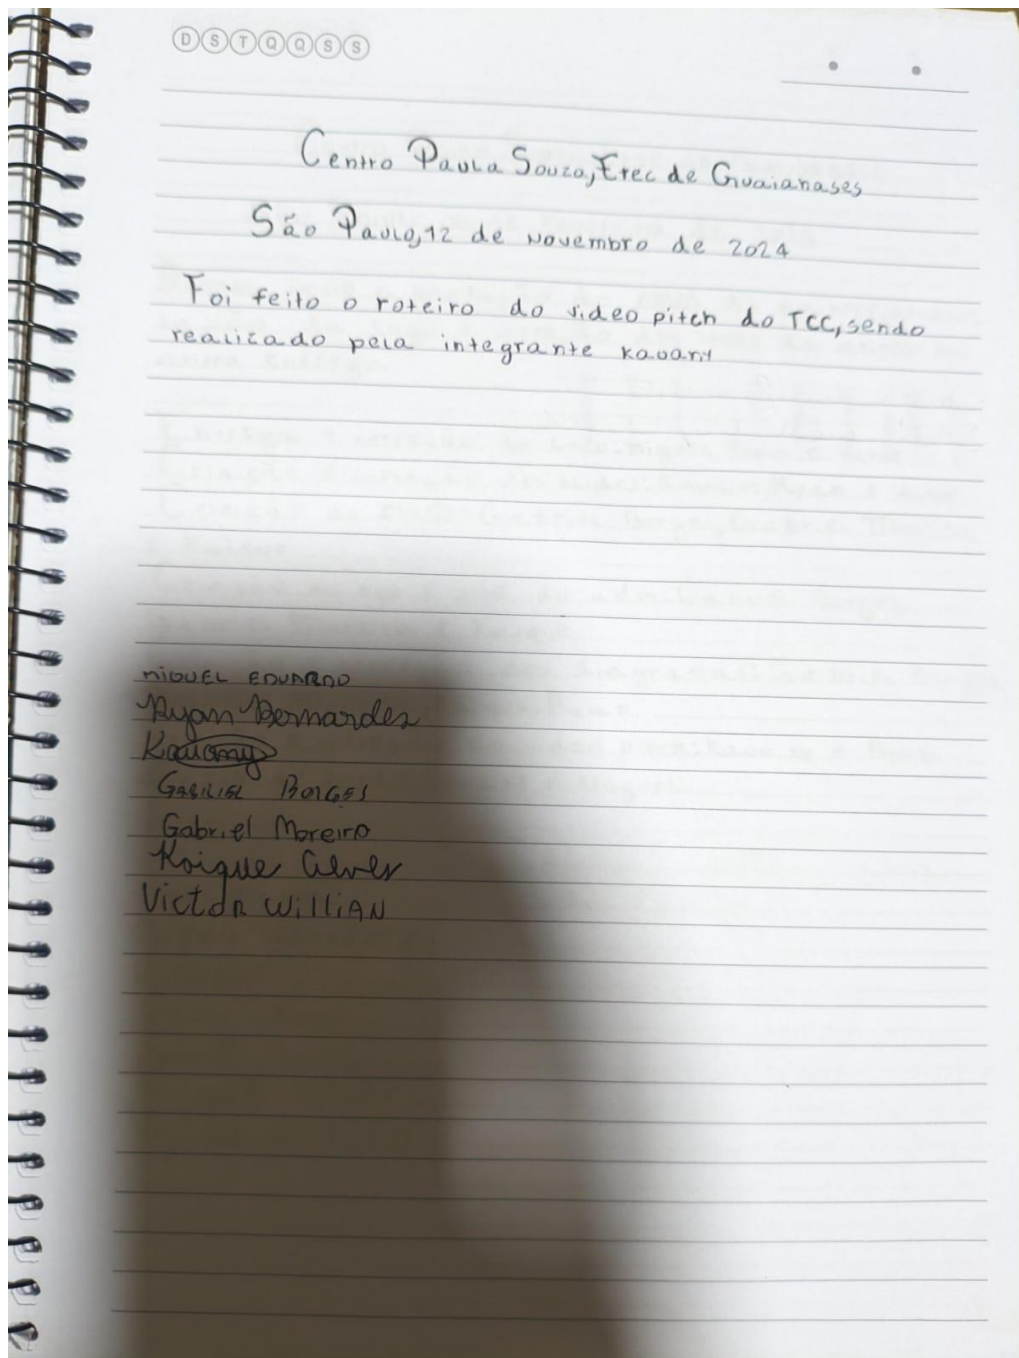 D S T Q Q S S
Centro Paula Souza, Etec de Guaianases
São Paulo, 12 de novembro de 2024
Foi feito o roteiro do video pitch do TCC, sendo
realizado pela integrante kauany
MIGUEL EDUARDO
Ryan Bernardes
Kauany
GABRIEL BORGES
Gabriel Moreira
Kaique Alves
Victor WilliAN